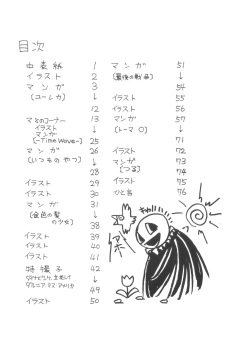 目次
中表紙 1
イラスト 2
マンガ 3
(ユーレカ) ↓
12
イラスト 13
マミのコーナー
イラスト
マンガ ↓
(-Time Wave-) 25
マンガ 26
(いつものやつ) ↓
28
イラスト 29
イラスト 30
マンガ 31
(金色の髪 ↓
の少女) 38
イラスト 39
イラスト 40
イラスト 41
特撮子 42
↓
49
イラスト 50
マンガ 51
(最後の戦品) ↓
54
イラスト 55
イラスト 56
マンガ 57
(トーマ O) ↓
71
イラスト 72
マンガ 73
(つる) ↓
74
イラスト 75
イラスト 76
アホー